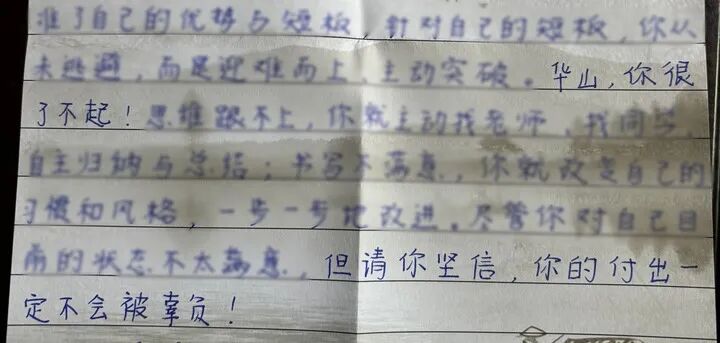 准了自己的优势与短板，针对自己的短板，你从
未逃避，而是迎难而上、主动突破。华山，你很
了不起！思维跟不上，你就主动找老师、找同学，
自主归纳与总结；书写不满意，你就改变自己的
习惯和风格，一步一步地改进。尽管你对自己目
前的状态不太满意，但请你坚信，你的付出一
定不会被辜负！